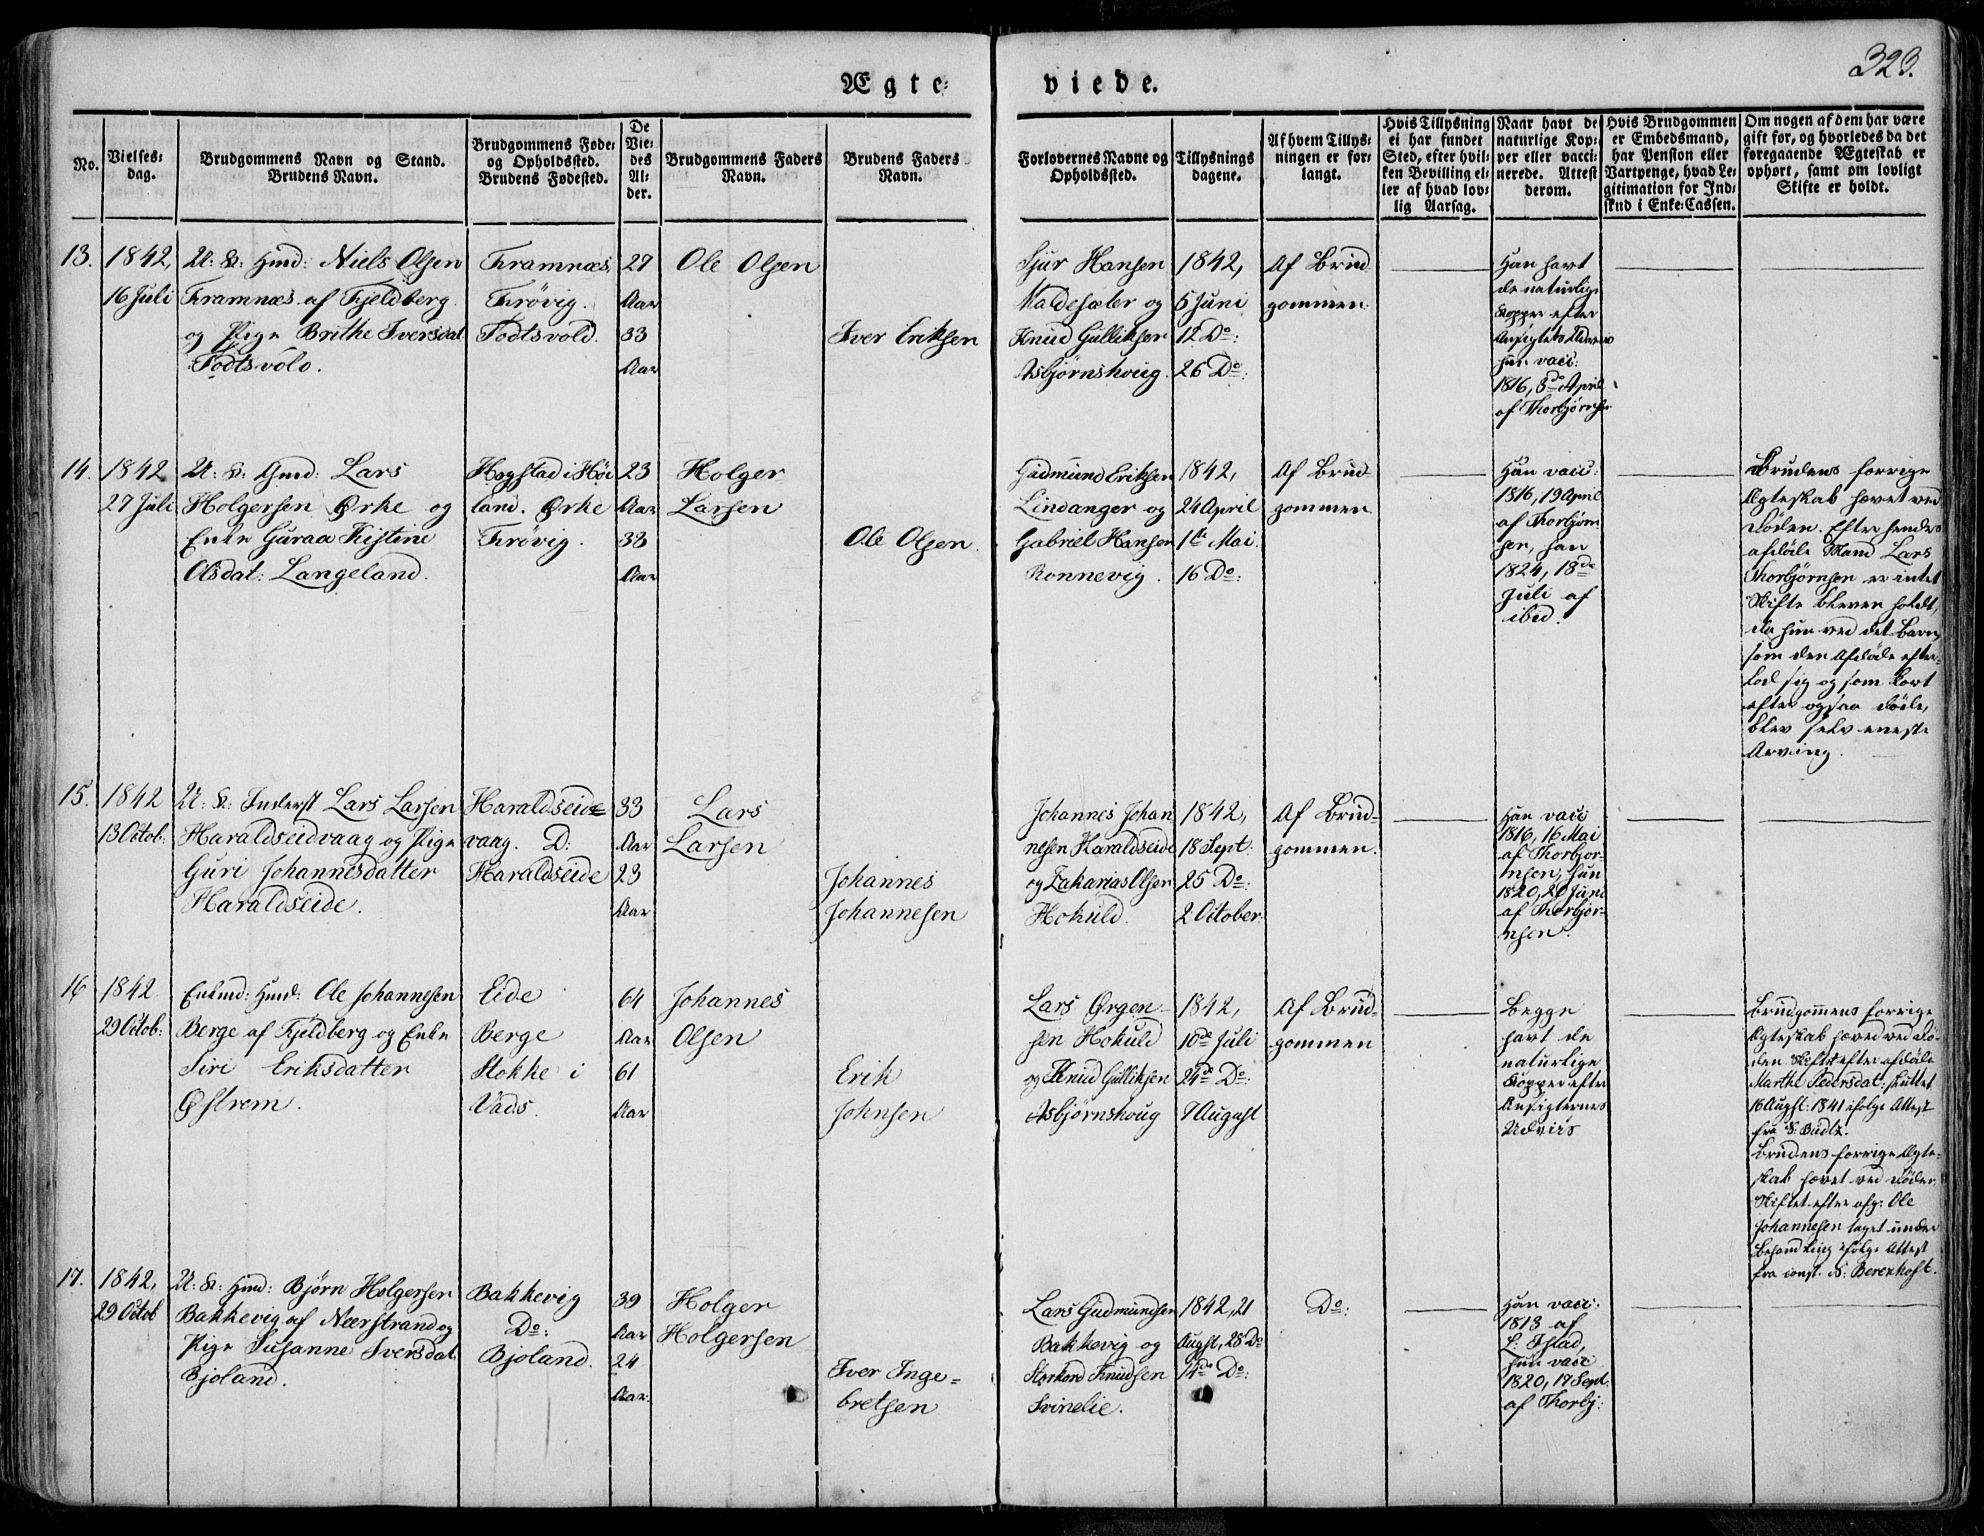 323.
Ægte viede.
No.
Vielses-
dag.
Brudgommens Navn og Stand.
Brudens Navn.
Brudgommens Føde-
og Opholdssted.
Brudens Fødested.
De
Vie-
des
Al-
der.
Brudgommens Faders
Navn.
Brudens Faders
Navn.
Forlovernes Navne og
Opholdssted.
Tillysnings
dagene.
Af hvem Tillys-
ningen er for-
langt.
Hvis Tillysning
ei har fundet
Sted, efter hvil-
ken Bevilling el-
ler af hvad lov-
lig Aarsag.
Naar havt de
naturlige Kop-
per eller vacci-
nerede. Attest
derom.
Hvis Brudgommen
er Embedsmand,
har Pension eller
Vartpenge, hvad Le-
gitimation for Ind-
skud i Enke-Cassen.
Om nogen af dem har være
gift før, og hvorledes da det
foregaaende Ægteskab er
ophørt, samt om lovligt
Skifte er holdt.
13.
1842,
16 Juli
U: K: Gmd: Niels Olsen
Framnæs af Fjeldberg
og Pige Brithe Iversdat.
Todtsvold.
Framnæs,
Frøvig.
Todtsvold.
27
Aar
33
Aar
Ole Olsen
Iver Eriksen
Sjur Hansen
og
Knud Gulliksen
Asbjørnshoug.
1842,
5 Juni
12 Do:
26 Do:
Af Brud
gommen
Han havt
de naturlige
Kopper efter
Ansigtets Udviis
hun vacc:
1816, 3de April
af Thorbjørnsen
14.
1842
27 Juli
U: K: Gmd: Lars
Holgersen Ørke og
Enke Guraa Kistine
Olsdat: Langeland.
Hogstad i Høi
land. Ørke
Frøvig.
23
Aar
33
Aar
Holger
Larsen
Ole Olsen.
Gudmund Eriksen
Lindanger og
Gabriel Hansen
Ronnevig.
1842,
24 April
1ste Mai.
16 Do:
Af Brud-
gommen
Hun vacc:
1816, 19 April
af Thorbjørn
sen, han
1824, 18de
Juli af
ibid.
Brudens forrige
Ægteskab hævet ved
Døden. Efter hendes
afdøde Mand Lars
Thorbjørnsen er intet
Skifte bleven holdt,
da hun ved det Barn,
som den Afdøde efter-
lod sig og som kort
efter ogsaa døde,
blev selv eneste
Arving.
15.
1842
13 Octob:
U: K: Inderst Lars Larsen
Haraldseidvaag og Pige
Guri Johannesdatter
Haraldseide.
Haraldseide
vaag. D:
Haraldseide
33
Aar
23
Aar
Lars
Larsen
Johannes
Johannesen
Johannes Johan
nesen Haraldseide
og Zakarias Olsen
Hokuld.
1842,
18 Sept:
25 Do:
2 October.
Af Brud-
gommen.
Han vacc
1816, 16 Mai
af Thorbjør-
nsen, hun
1820, 20 Juni
af Thorbjør-
nsen.
16
1842
29 Octob:
Enkmd: Gmd: Ole Johannesen
Berge af Fjeldberg og Enke
Siri Eriksdatter
Østrem.
Eide
Berge
Stokke i
Vads.
64
Aar
61
Aar
Johannes
Olsen
Erik
Johnsen
Lars Ørgen-
sen Hokuld
og Knud Gulliksen
Asbjørnshoug
1842,
10de Juli
24de Do:
7 August
Af Brud-
gommen
Begge
havt de
naturlige
Kopper efter
Ansigternes
Udviis
Brudgommens forrige
Ægteskab hævet ved Dø-
den Skiftet efter afdøde
Marthe Pedersdat: sluttet
16 Augst: 1841 ifølge Attest
fra S: Budtz.
Brudens forrige Ægte-
skab hævet ved Døden
Skiftet efter afg: Ole
Johannesen taget under
Behandling ifølge Attest
fra const. S: Berenhoft.
17.
1842,
29 Octob
U: K: Gmd: Bjørn Holgersen
Bakkevig af Nærstrand og
Pige Susanne Iversdat.
Bjoland.
Bakkevig
Do:
Bjoland.
39
Aar
24
Aar.
Holger
Holgersen
Iver Inge-
bretsen
Lars Gudmundsen
Bakkevig og
Knudsen
Svinelie.
1842, 21
Augst, 28 Do
14de Do:
Do:
Han vacc:
1813 af
Hun vacc
1820, 17 Sept.
af Thorbj: